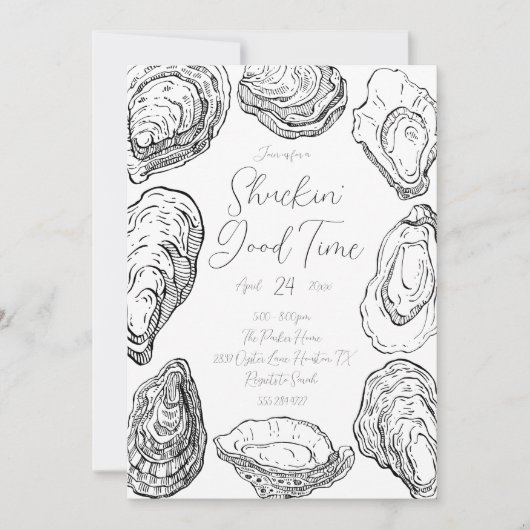 Join us for a
Shuckin'
Good Time
April 24 20xx
5:00 - 8:00pm
The Parker Home
2839 Oyster Lane Houston TX
Regrets to Sarah
555.284.9727